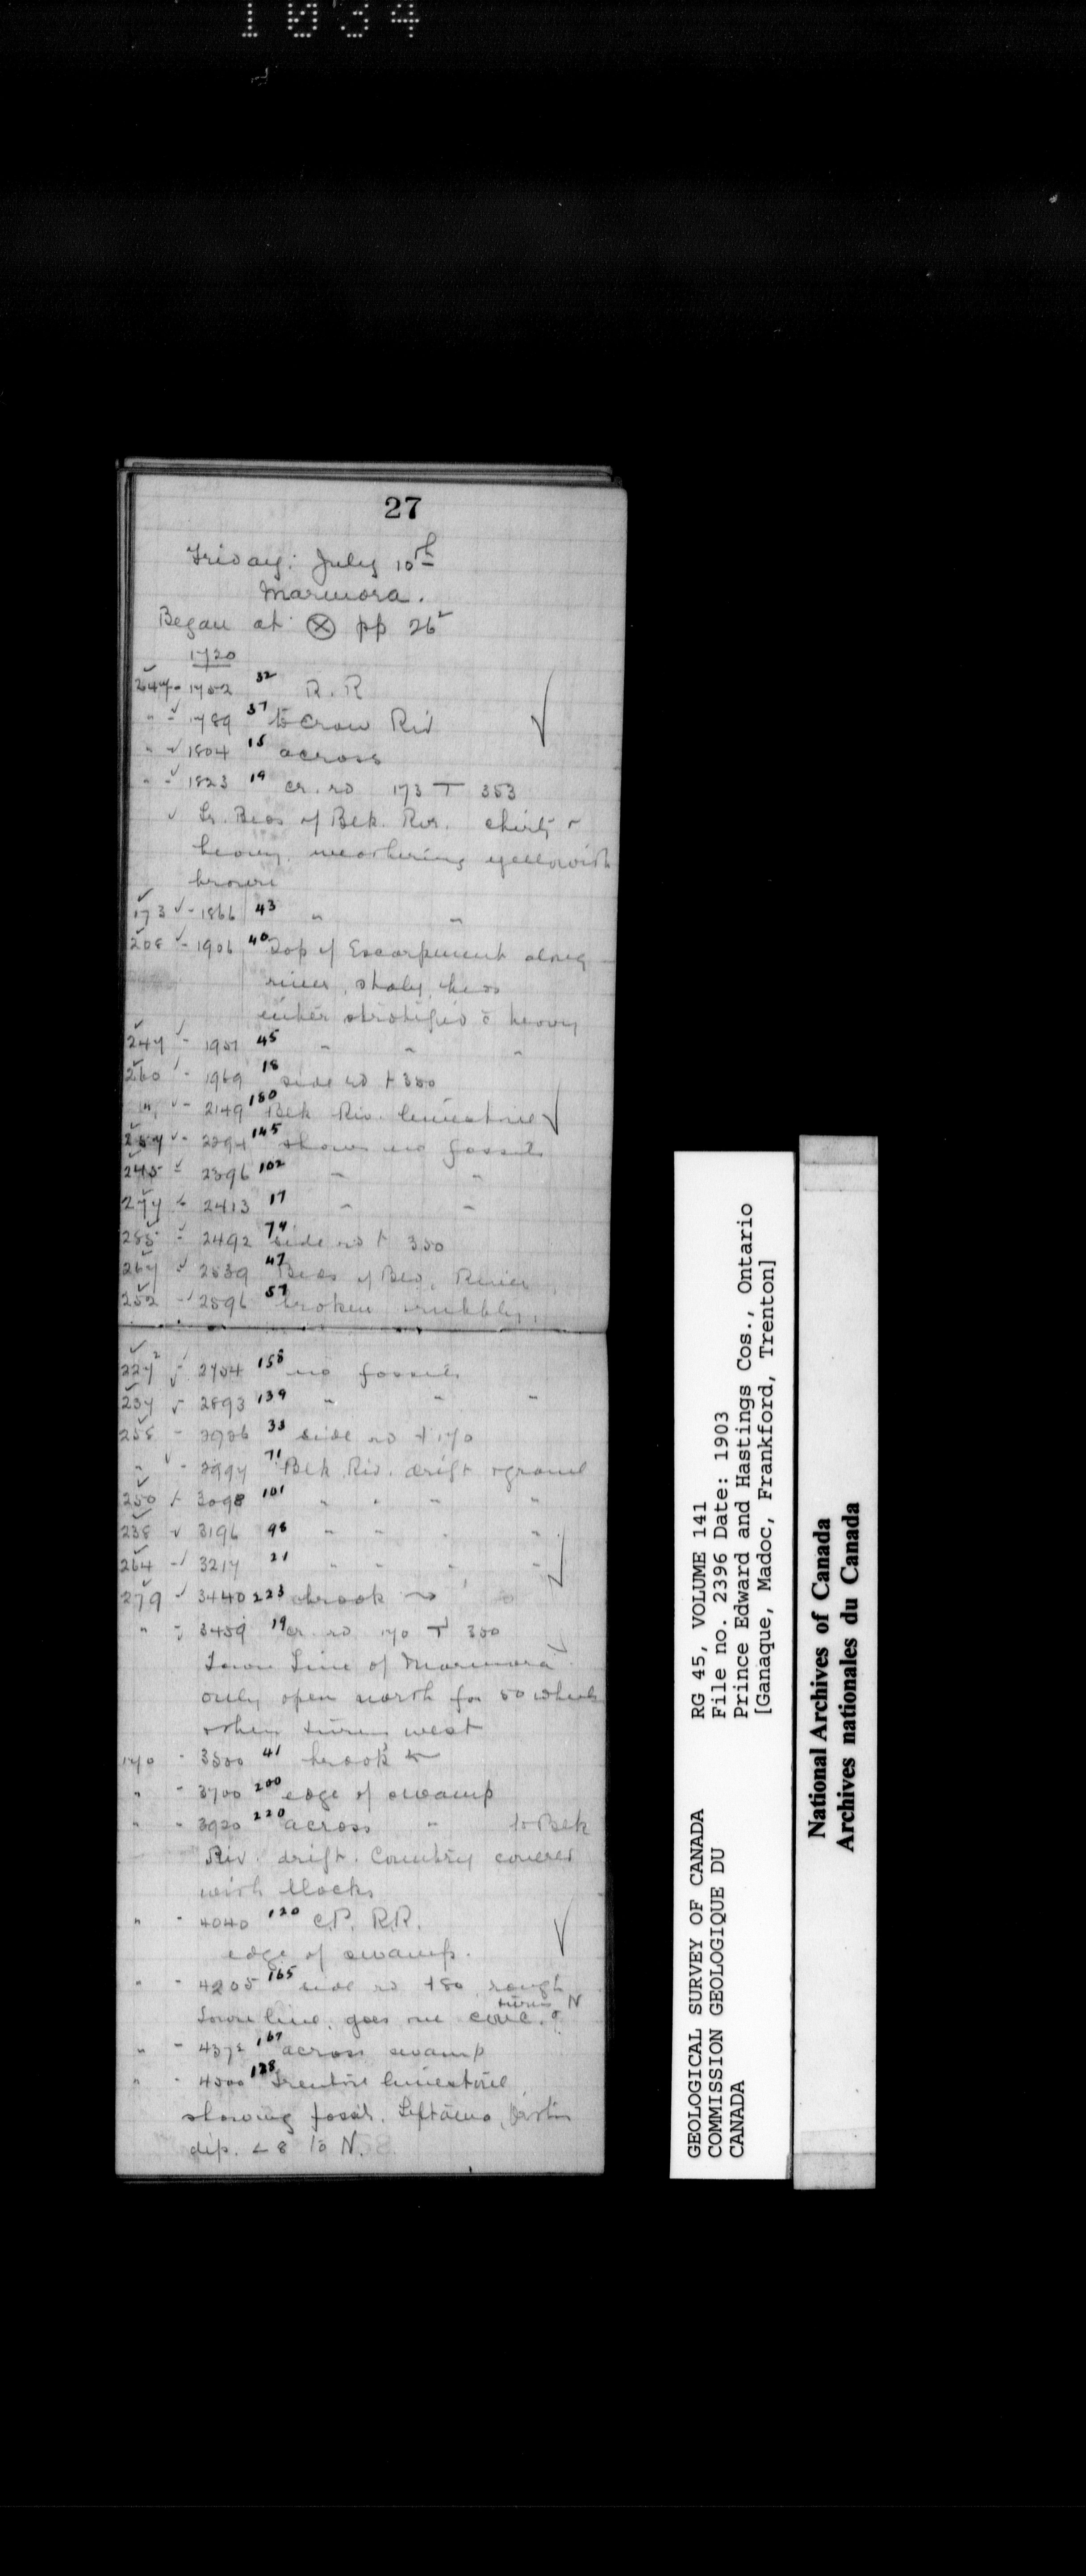 1034
27
Friday: July 10th
Marmora.
Began at ⊗ pp 26²
1720
247 - 1752 32 R. R
" - 1789 37 to Crow Riv
" - 1804 15 across
" - 1823 19 cr. rd 173 T 353
Lr. Beds of Blk. Riv.
heavy. weathering yellowish
brown
173 - 1866 43 " "
208 - 1906 40 Top of Escarpment along
river, shaly,
either stratified heavy
247 - 1951 45 " " "
260 - 1969 18 side rd + 350
" - 2149 180 Blk Riv. limestone
257 - 2294 145 shows no fossils
245 - 2396 102 " "
277 - 2413 17 " "
285 - 2492 79 side rd + 350
267 - 2539 47 Beds of Blk. River
252 - 2596 57 broken rubbly,
227² - 2754 158 no fossils
237 - 2893 139 " " "
258 - 2926 33 side rd + 170
" - 2997 71 Blk Riv. drift gravel
250 - 3098 101 " " " "
238 - 3196 98 " " " "
264 - 3217 21 " " " "
279 - 3440 223 brook →
" - 3459 19 cr. rd 170 T 350
Town Line of Marmora
only open north for 50 wheels
then turns west
170 - 3500 41 brook ←
" - 3700 200 edge of swamp
" - 3920 220 across " to Blk
Riv. drift. Country covered
with blocks
" - 4040 120 C.P. R.R.
edge of swamp.
" - 4205 165 side rd + 80 rough
turns N
Town line, goes one conc.
" - 4372 167 across swamp
" - 4500 128 Trenton limestone
showing fossils. Leptaena, Orthis
dip. < 8 to N.
GEOLOGICAL SURVEY OF CANADA
COMMISSION GEOLOGIQUE DU
CANADA
RG 45, VOLUME 141
File no. 2396 Date: 1903
Prince Edward and Hastings Cos., Ontario
[Ganaque, Madoc, Frankford, Trenton]
National Archives of Canada
Archives nationales du Canada